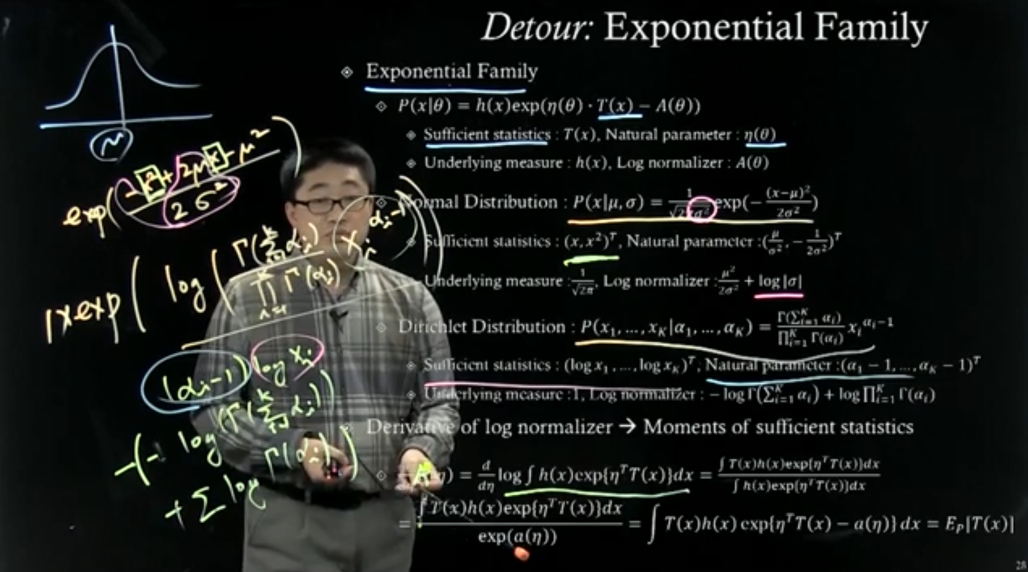 Detour: Exponential Family
Exponential Family
P(x|θ) = h(x)exp(η(θ) · T(x) − A(θ))
Sufficient statistics : T(x), Natural parameter : η(θ)
Underlying measure : h(x), Log normalizer : A(θ)
Normal Distribution : P(x|μ, σ) = 1/√(2πσ²) exp(−(x−μ)²/2σ²)
Sufficient statistics : (x, x²)ᵀ, Natural parameter :(μ/σ², −1/2σ²)ᵀ
Underlying measure : 1/√2π, Log normalizer : μ²/2σ² + log|σ|
Dirichlet Distribution : P(x₁, ..., x_K|α₁, ..., α_K) = Γ(Σᵢ₌₁ᴷ αᵢ)/∏ᵢ₌₁ᴷ Γ(αᵢ) xᵢ^(αᵢ−1)
Sufficient statistics : (log x₁, ..., log x_K)ᵀ, Natural parameter :(α₁ − 1, ..., α_K − 1)ᵀ
Underlying measure : 1, Log normalizer : − log Γ(Σᵢ₌₁ᴷ αᵢ) + log ∏ᵢ₌₁ᴷ Γ(αᵢ)
Derivative of log normalizer → Moments of sufficient statistics
) = d/dη log ∫ h(x)exp{ηᵀT(x)}dx = ∫ T(x)h(x)exp{ηᵀT(x)}dx / ∫ h(x)exp{ηᵀT(x)}dx
= ∫ T(x)h(x)exp{ηᵀT(x)}dx / exp(a(η)) = ∫ T(x)h(x) exp{ηᵀT(x) − a(η)} dx = E_P[T(x)]
28
μ
exp(−x² + 2μx − μ² / 2σ²)
1×exp(log(Γ(Σαᵢ) / ∏ Γ(αᵢ) xᵢ^(αᵢ−1)))
(αᵢ−1) log xᵢ
−(− log(Γ(Σαᵢ))
+ Σ log Γ(αᵢ))